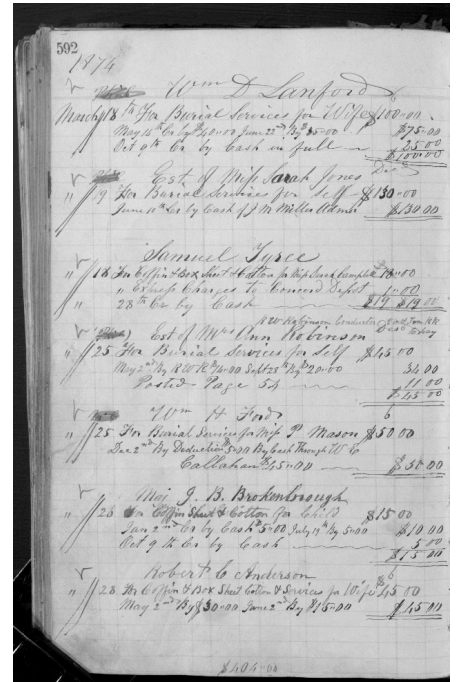 592
1874
Wm D Lanford
March 18th For Burial Services for Wife $100.00
May 16th Cr by $40=00 June 22nd By $35=00 $75=00
Oct 9th Cr by Cash in full 25.00
$100.00
Est of Miss Sarah Jones
" 19 For Burial Services for Self $130=00
June 10th Cr by Cash of J M Miller Admr $130.00
Samuel Tyree
" 18 For Coffin & Box Sheet & Cotton for Miss Campbell 18=00
" Express Charges to Concord Depot 1=00
" 28th Cr by Cash $19 $19.00
R W Robinson Conductor
Est of Mrs Ann Robinson
" 25 For Burial Services for Self $45=00
May 2nd By R W R $14=00 Sept 28th By $20=00 34 00
Posted Page 54 11 00
$45 00
Wm H Ford
" 25 For Burial Services for Miss P Mason $50=00
Dec 2nd By Deduction $5=00 By Cash Through W C
Callahan $45=00 $50.00
Maj J. B. Brokenbrough
" 26 For Coffin Sheet & Cotton for Child $15=00
Jan 2nd Cr by Cash $5=00 July 19th By 5=00 $10.00
Oct 9th Cr by Cash 5 00
$15 00
Robert C Anderson
" 28 For Coffin & Box Sheet Cotton & Services for Wife $45.00
May 2nd By $30=00 June 2nd By $15=00 $45.00
$404=00